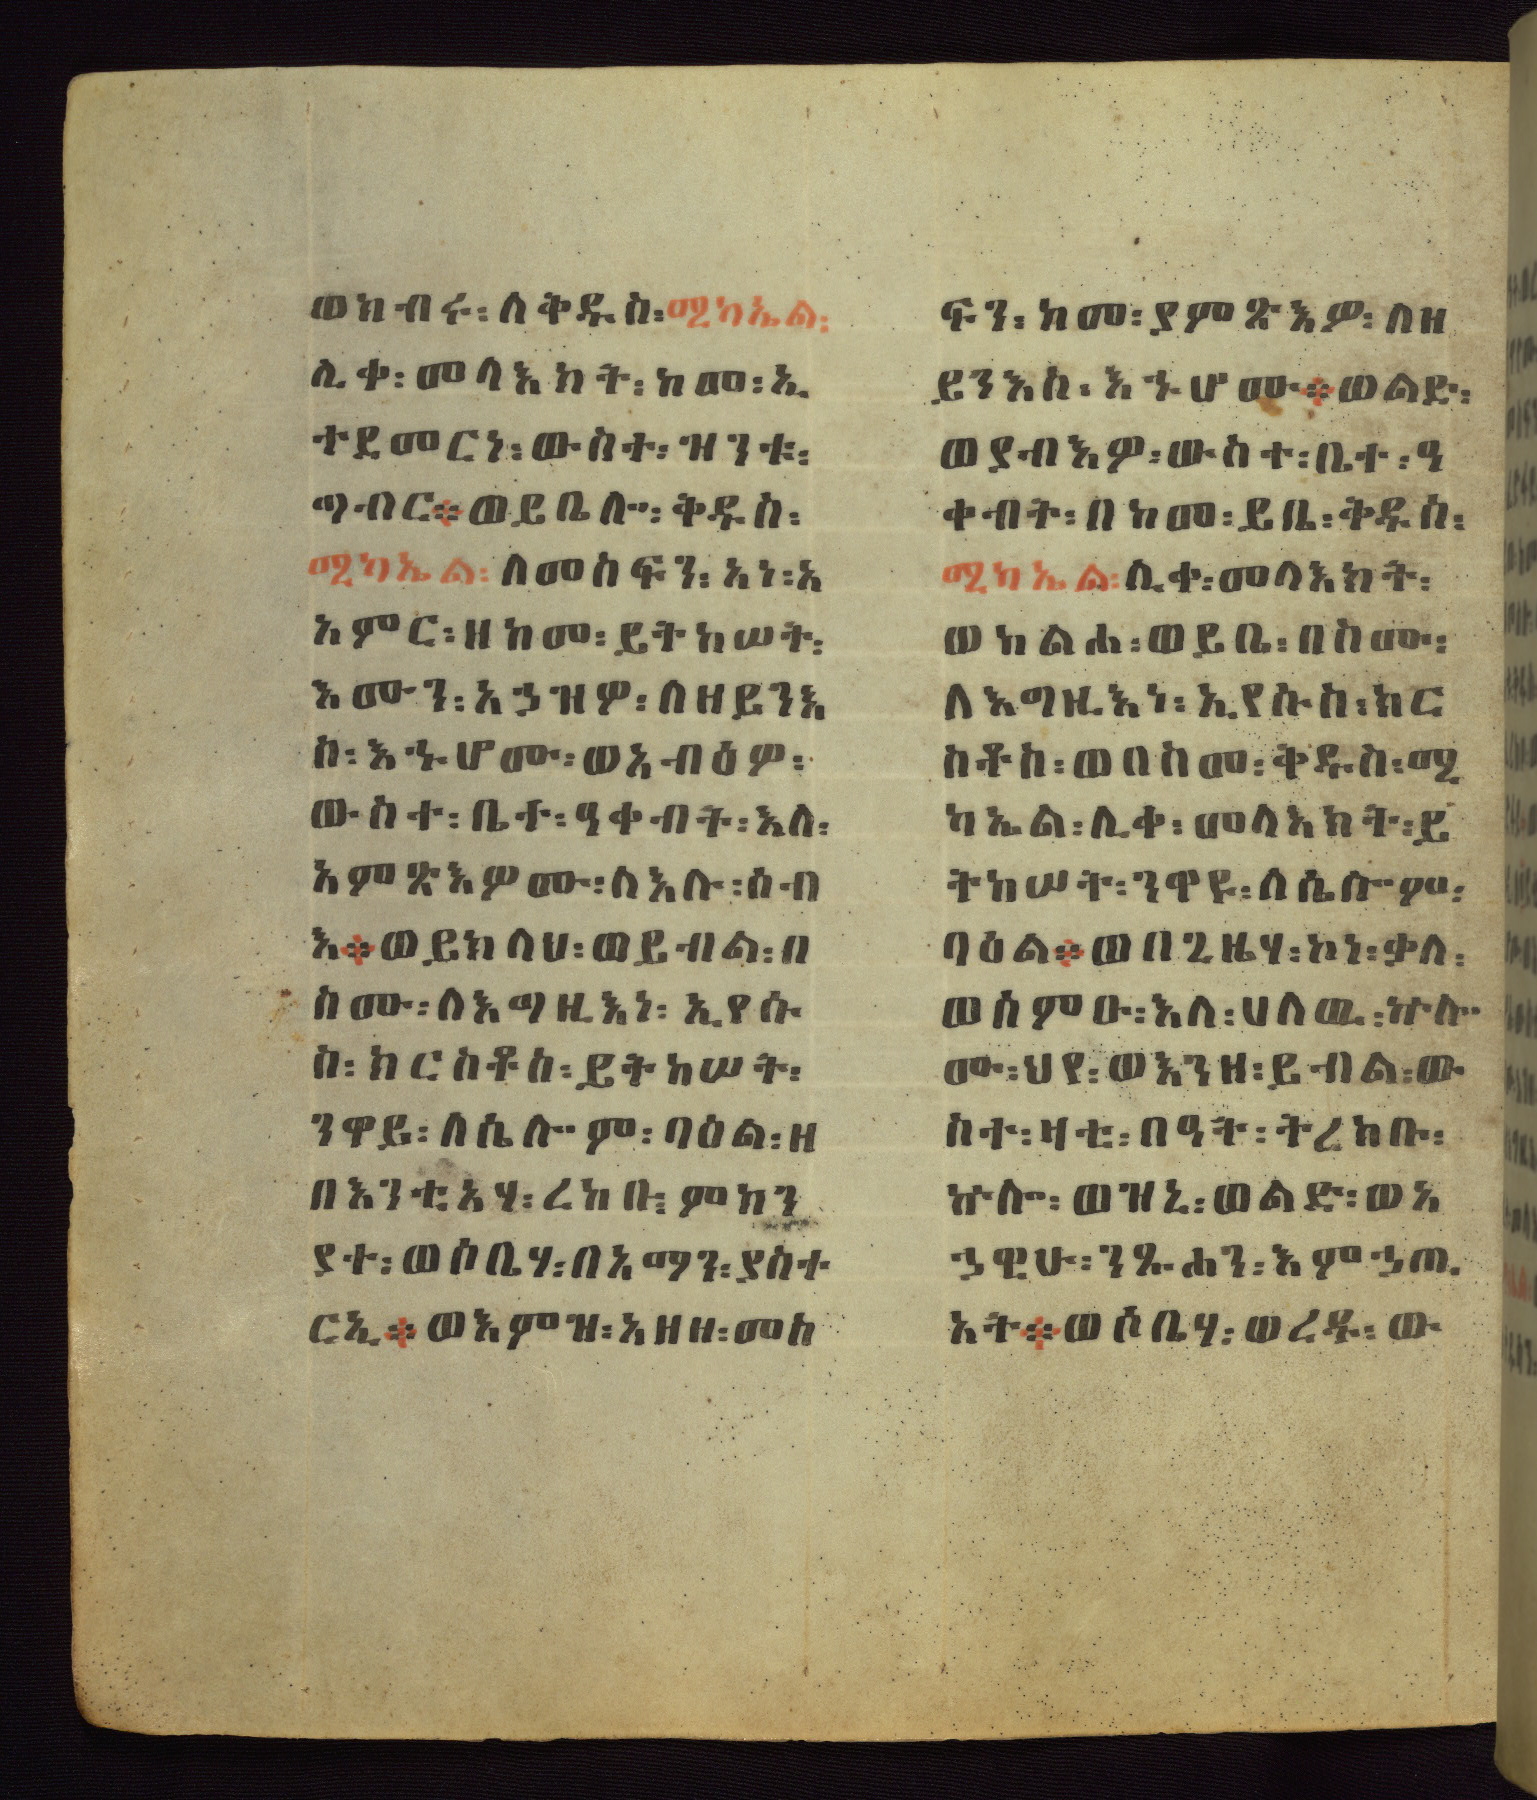 ወክብሩ፡ለቅዱስ፡ሚካኤል፡
ሊቀ፡መላእክት፡ከመ፡ኢ
ተደመርነ፡ውስተ፡ዝንቱ፡
ግብር፨ወይቤሎ፡ቅዱስ፡
ሚካኤል፡ለመስፍን፡አነ፡አ
አምር፡ዘከመ፡ይትከሠት፡
እሙን፡አኃዝዎ፡ለዘይንእ
ስ፡እኁሆሙ፡ወአብዕዎ፡
ውስተ፡ቤተ፡ዓቀብት፡እለ፡
አምጽእዎሙ፡ለእሉ፡ሰብ
እ፨ወይክላህ፡ወይብል፡በ
ስሙ፡ለእግዚእነ፡ኢየሱ
ስ፡ክርስቶስ፡ይትከሠት፡
ንዋይ፡ለሴሎም፡ባዕል፡ዘ
በእንቲአሃ፡ረከቡ፡ምክን
ያተ፡ወሶቤሃ፡በአማን፡ያስተ
ርኢ፨ወእምዝ፡አዘዘ፡መስ
ፍን፡ከመ፡ያምጽእዎ፡ለዘ
ይንእስ፡እኁሆሙ፨ወልድ፡
ወያብእዎ፡ውስተ፡ቤተ፡ዓ
ቀብት፡በከመ፡ይቤ፡ቅዱስ፡
ሚካኤል፡ሊቀ፡መላእክት፡
ወከልሐ፡ወይቤ፡በስሙ፡
ለእግዚእነ፡ኢየሱስ፡ክር
ስቶስ፡ወበስመ፡ቅዱስ፡ሚ
ካኤል፡ሊቀ፡መላእክት፡ይ
ትከሠት፡ንዋዩ፡ለሴሎም፡
ባዕል፨ወበጊዜሃ፡ኮነ፡ቃለ፡
ወሰምዑ፡እለ፡ሀለዉ፡ኵሎ
ሙ፡ህየ፡ወእንዘ፡ይብል፡ው
ስተ፡ዛቲ፡በዓት፡ትረክቡ፡
ኵሎ፡ወዝኒ፡ወልድ፡ወአ
ኃዊሁ፡ንጹሐን፡እምኃጢ
አት፨ወሶቤሃ፡ወረዱ፡ው